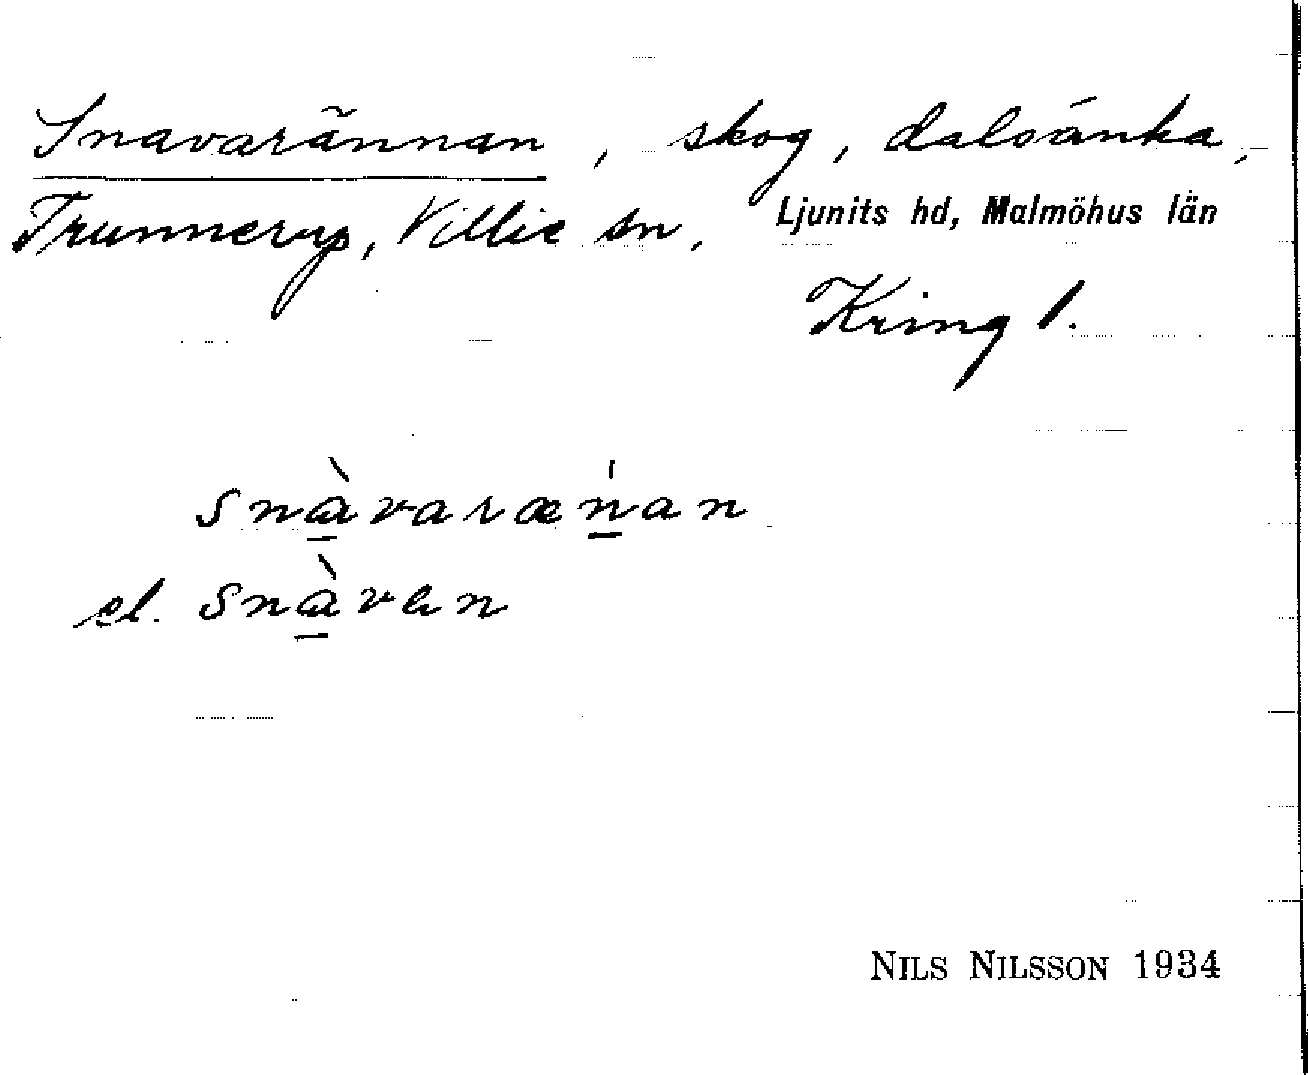 Snavarännan, skog, dalsänka,
Trunnerup, Villie sn, Ljunits hd, Malmöhus län
Kring 1.
snàvaræ̀nan
el. snàvan
NILS NILSSON 1934